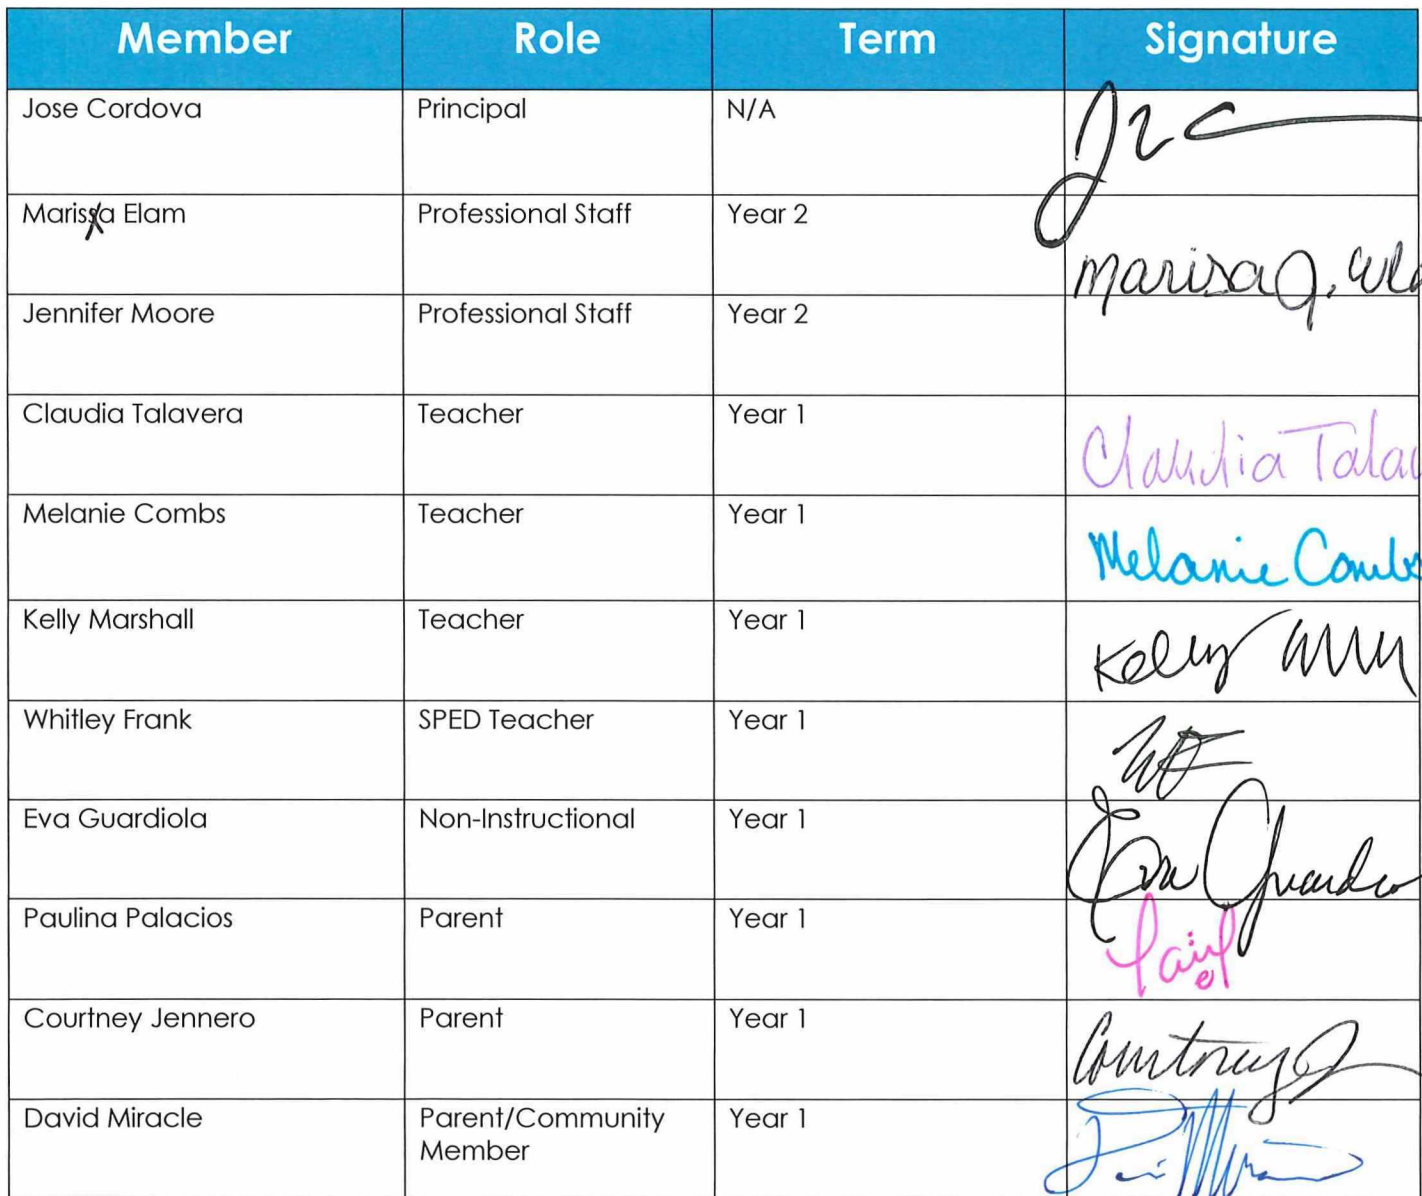 Member Role Term Signature
Jose Cordova Principal N/A
Marissa Elam Professional Staff Year 2 Marisa J. Ela
Jennifer Moore Professional Staff Year 2
Claudia Talavera Teacher Year 1 Claudia Talav
Melanie Combs Teacher Year 1 Melanie Combs
Kelly Marshall Teacher Year 1 Kelly
Whitley Frank SPED Teacher Year 1 WF
Eva Guardiola Non-Instructional Year 1 Eva Guardio
Paulina Palacios Parent Year 1
Courtney Jennero Parent Year 1 Courtney J
David Miracle Parent/Community Year 1
Member